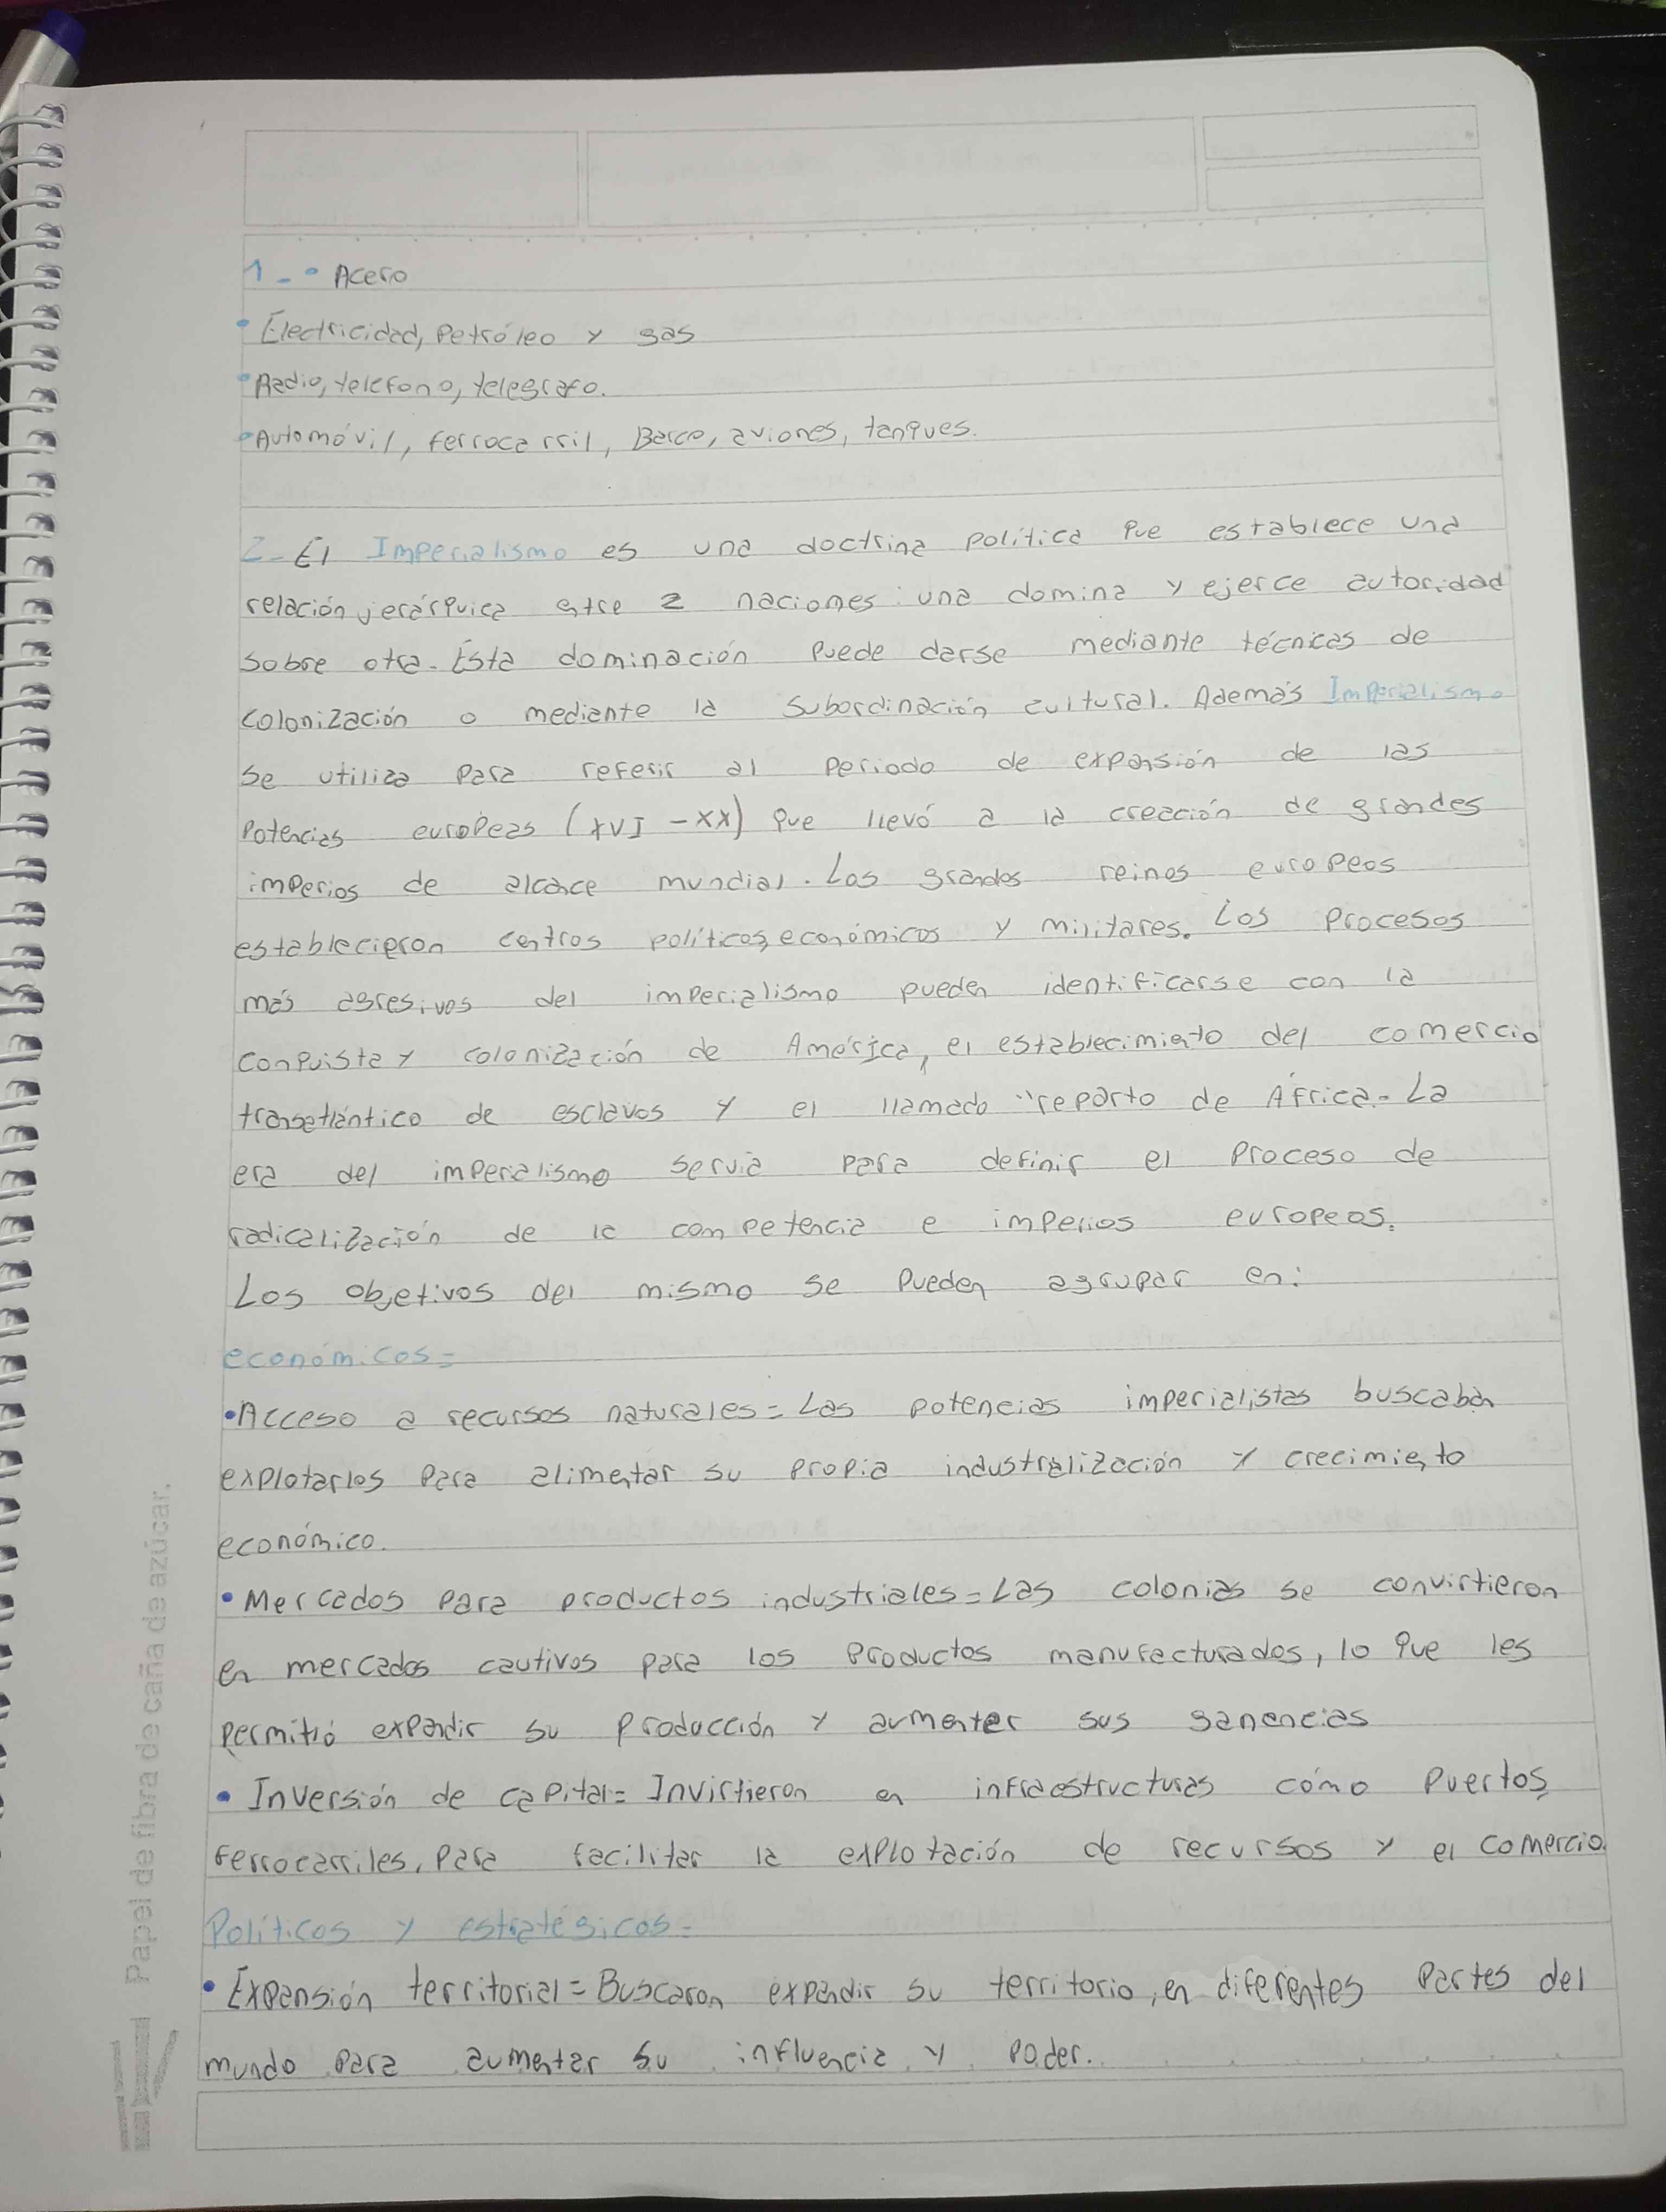 1-• Acero
• Electricidad, Petróleo y gas
• Radio, telefono, telegrafo.
• Automóvil, ferrocarril, Barco, aviones, tanques.
2- El Imperialismo es una doctrina política que establece una
relación jerárquica entre 2 naciones: una domina y ejerce autoridad
sobre otra. Esta dominación puede darse mediante técnicas de
colonización o mediante la subordinación cultural. Además Imperialismo
se utiliza para referir al periodo de expansión de las
potencias europeas (XVI - XX) que llevó a la creación de grandes
imperios de alcance mundial. Los grandes reinos europeos
establecieron centros políticos, económicos y militares. Los procesos
más agresivos del imperialismo pueden identificarse con la
conquista y colonización de América, el establecimiento del comercio
transatlántico de esclavos y el llamado "reparto de África. La
era del imperialismo servia para definir el proceso de
radicalización de la competencia e imperios europeos.
Los objetivos del mismo se pueden agrupar en:
económicos=
• Acceso a recursos naturales= Las potencias imperialistas buscaban
explotarlos para alimentar su propia industralización y crecimiento
económico.
• Mercados para productos industriales= Las colonias se convirtieron
en mercados cautivos para los productos manufacturados, lo que les
permitió expandir su producción y aumentar sus ganancias
• Inversión de capital= Invirtieron en infraestructuras cómo puertos,
ferrocarriles, para facilitar la explotación de recursos y el comercio.
Políticos y estratégicos=
• Expansión territorial= Buscaron expandir su territorio, en diferentes partes del
mundo para aumentar su influencia y poder.
Papel de fibra de caña de azúcar.